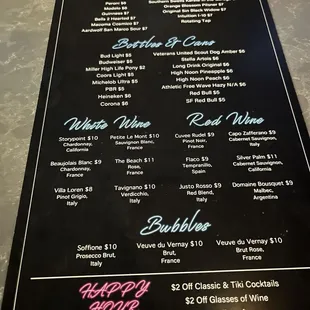 Peroni $6
Modelo $6
Guinness $7
Bells 2 Hearted $7
Mazoma Cosmico $7
Aardwolf San Marco Sour $7
Orange Blossom Pilsner $7
Original Sin Black Widow $7
Intuition I-10 $7
Rotating Tap
Bottles & Cans
Bud Light $5
Budweiser $5
Miller High Life Pony $2
Coors Light $5
Michelob Ultra $5
PBR $5
Heineken $6
Corona $6
Veterans United Scout Dog Amber $6
Stella Artois $6
Long Drink Original $6
High Noon Pineapple $6
High Noon Peach $6
Athletic Free Wave Hazy N/A $6
Red Bull $5
SF Red Bull $5
White Wine
Storypoint $10
Chardonnay,
California
Petite Le Mont $10
Sauvignon Blanc,
France
Beaujolais Blanc $9
Chardonnay,
France
The Beach $11
Rose,
France
Villa Loren $8
Pinot Grigio,
Italy
Tavignano $10
Verdicchio,
Italy
Red Wine
Cuvee Rudel $9
Pinot Noir,
France
Capo Zafferano $9
Cabernet Sauvignon,
Italy
Flaco $9
Tempranillo,
Spain
Silver Palm $11
Cabernet Sauvignon,
California
Justo Rosso $9
Red Blend,
Italy
Domaine Bousquet $9
Malbec,
Argentina
Bubbles
Soffione $10
Prosecco Brut,
Italy
Veuve du Vernay $10
Brut,
France
Veuve du Vernay $10
Brut Rose,
France
HAPPY
HOUR
$2 Off Classic & Tiki Cocktails
$2 Off Glasses of Wine